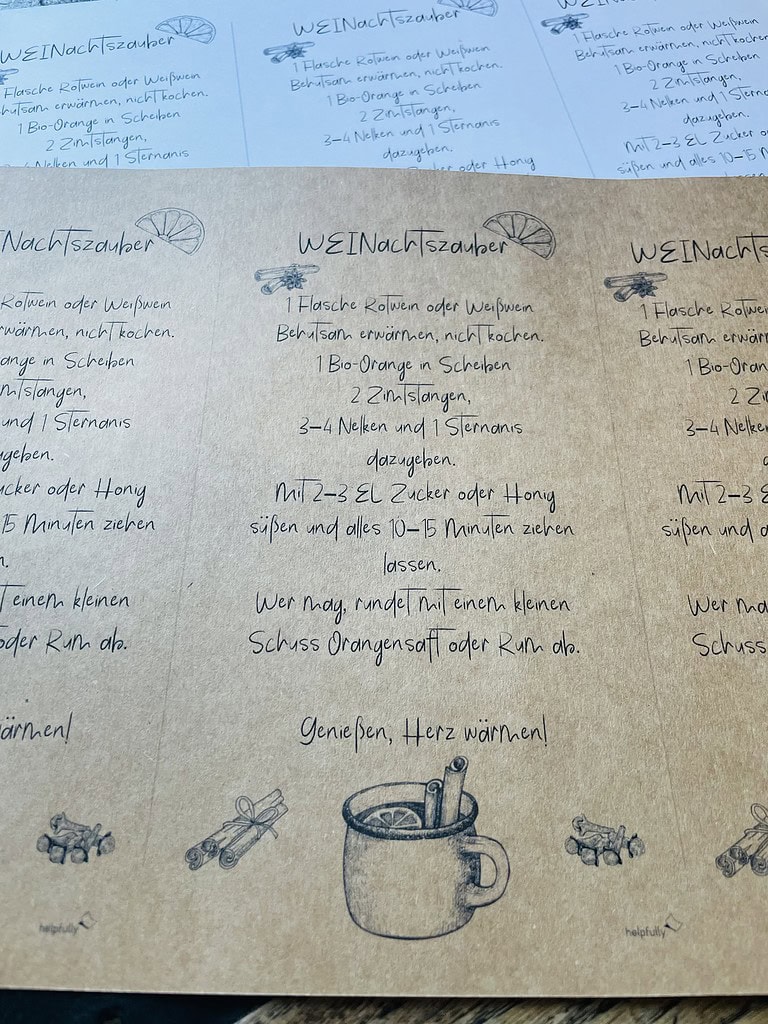 WEINachtszauber
1 Flasche Rotwein oder Weißwein
Behutsam erwärmen, nicht kochen.
1 Bio-Orange in Scheiben
2 Zimtstangen,
3–4 Nelken und 1 Sternanis
WEINachtszauber
1 Flasche Rotwein oder Weißwein
Behutsam erwärmen, nicht kochen.
1 Bio-Orange in Scheiben
2 Zimtstangen,
3–4 Nelken und 1 Sternanis
dazugeben.
oder Honig
1 Flasche Rotwein oder Weißwein
Behutsam erwärmen, nicht kochen.
1 Bio-Orange in Scheiben
2 Zimtstangen,
3–4 Nelken und 1 Sternanis
dazugeben.
Mit 2–3 EL Zucker
süßen und alles 10–15
Nachtszauber
Rotwein oder Weißwein
rwärmen, nicht kochen.
ange in Scheiben
mtstangen,
und 1 Sternanis
geben.
ucker oder Honig
15 Minuten ziehen
n.
t einem kleinen
oder Rum ab.
ärmen!
helpfully
WEINachtszauber
1 Flasche Rotwein oder Weißwein
Behutsam erwärmen, nicht kochen.
1 Bio-Orange in Scheiben
2 Zimtstangen,
3–4 Nelken und 1 Sternanis
dazugeben.
Mit 2–3 EL Zucker oder Honig
süßen und alles 10–15 Minuten ziehen
lassen.
Wer mag, rundet mit einem kleinen
Schuss Orangensaft oder Rum ab.
Genießen, Herz wärmen!
helpfully
WEINachts
1 Flasche Rotwe
Behutsam erwär
1 Bio-Oran
2 Zi
3–4 Nelke
Mit 2–3 E
süßen und a
Wer ma
Schuss